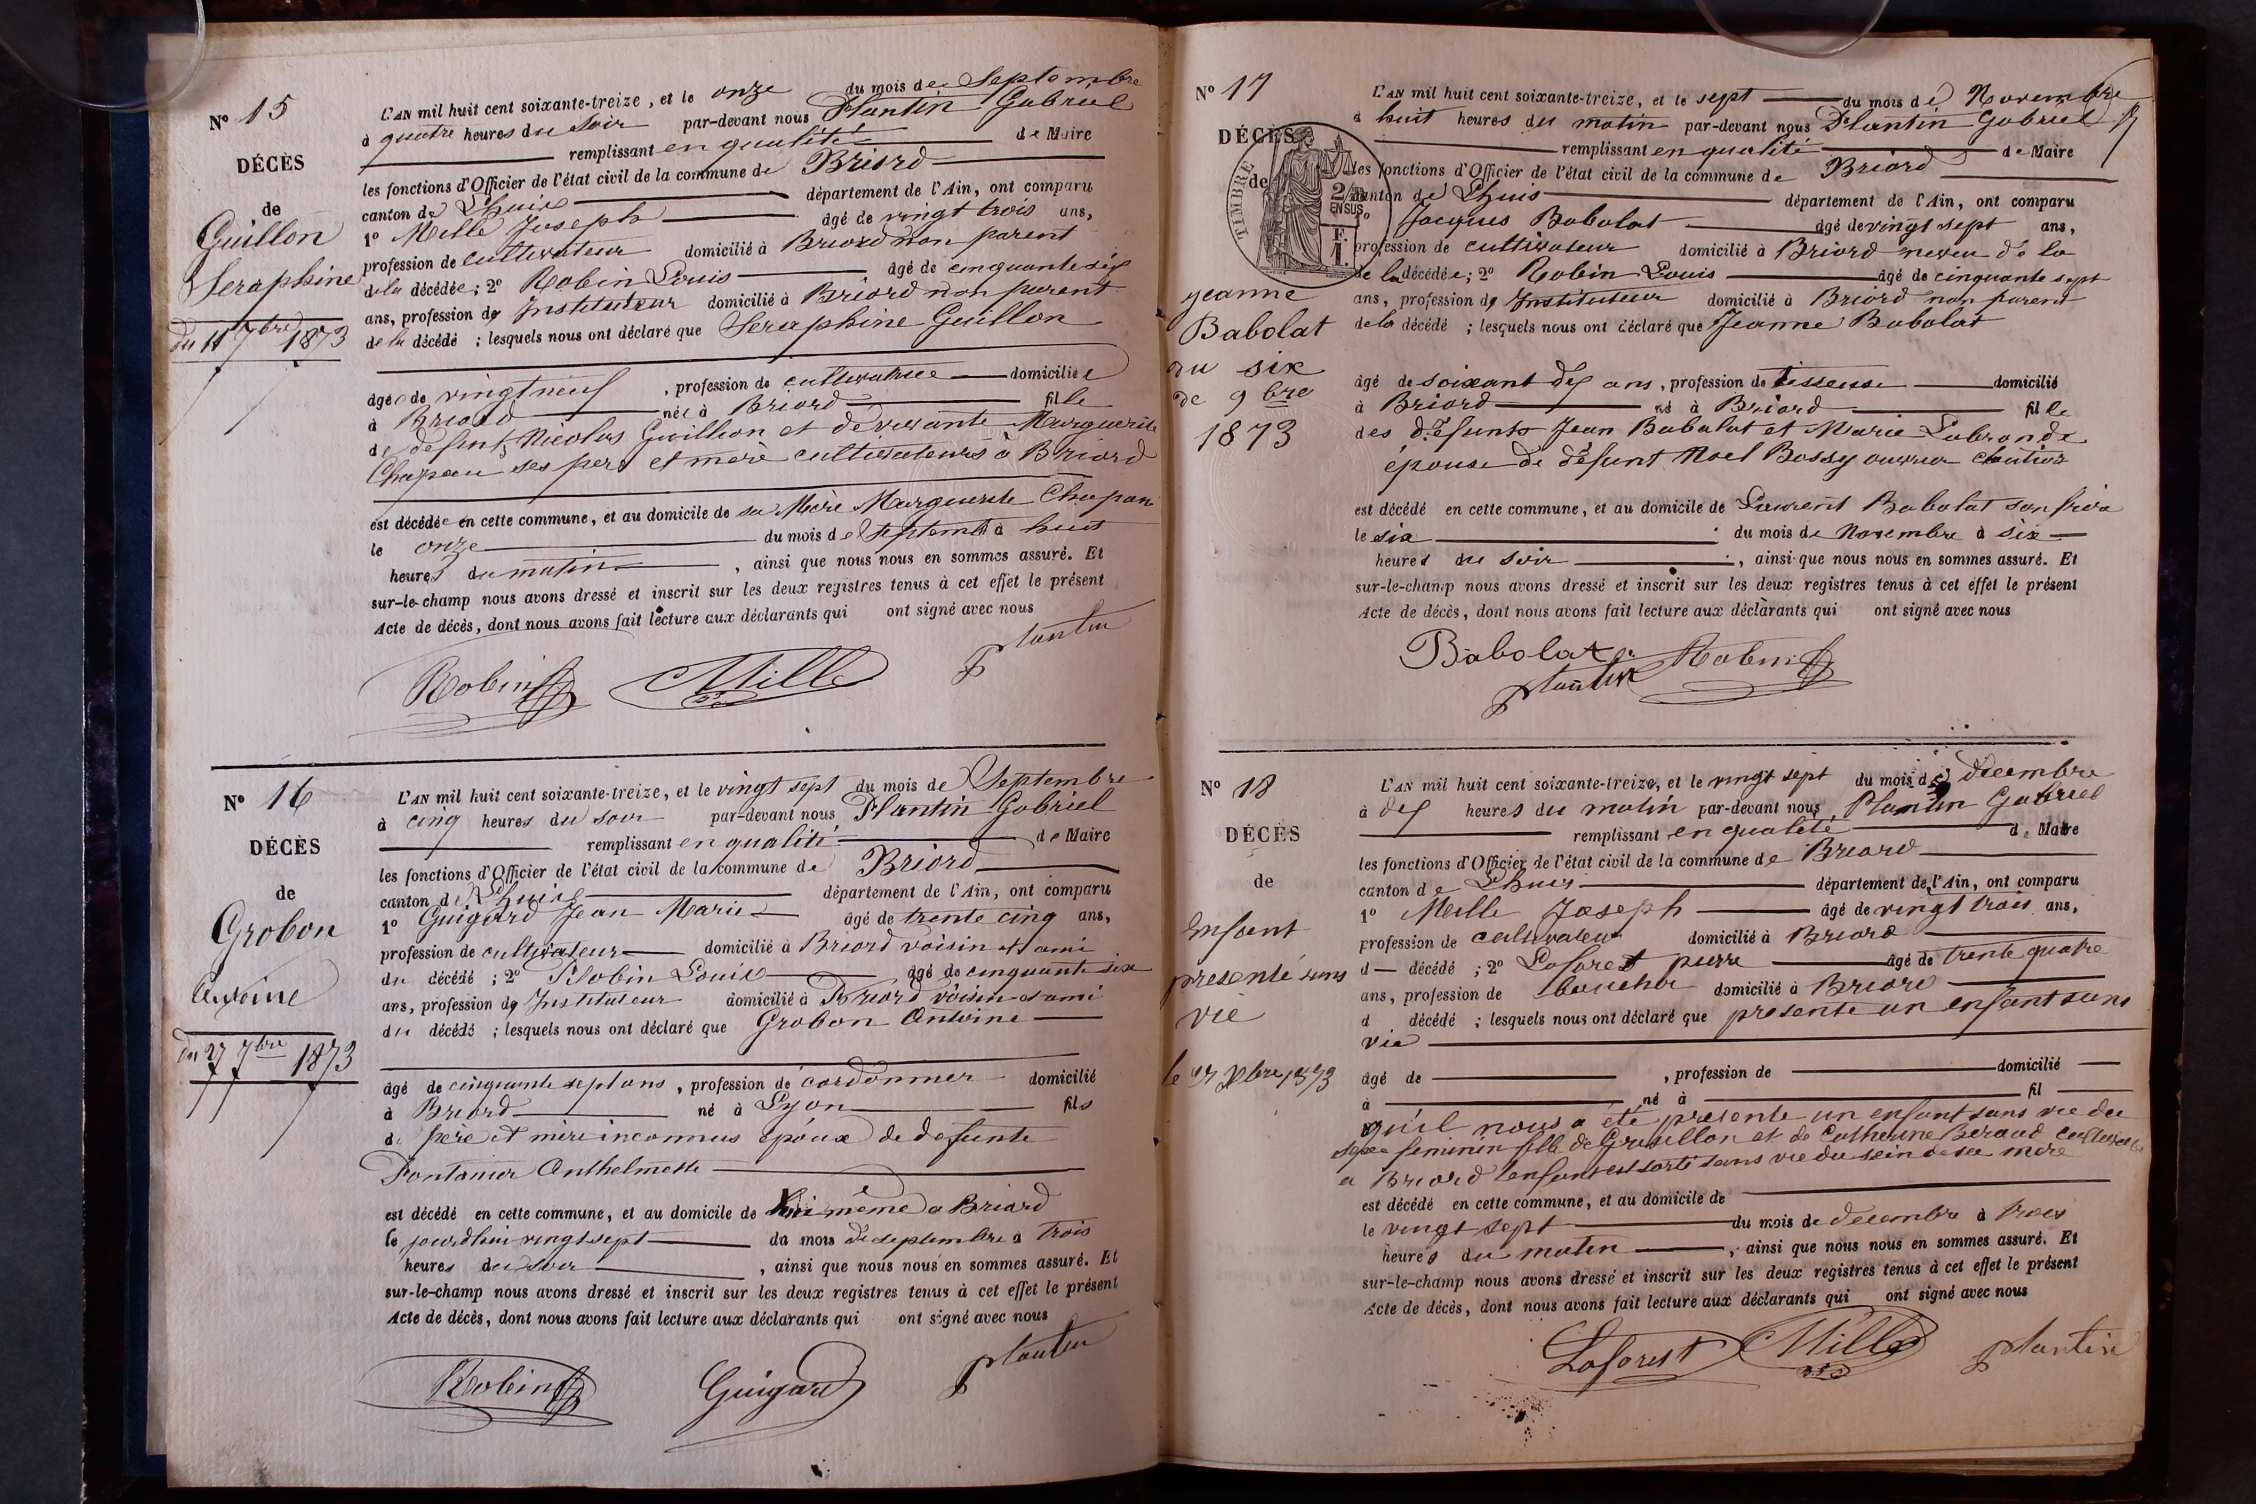 N° 15
DÉCÈS
de
Guillon
Seraphine
du 11 7bre 1873
L'AN mil huit cent soixante-treize, et le onze du mois de Septembre
à quatre heures du Soir par-devant nous Plantin Gabriel
remplissant en qualité de Maire
les fonctions d'Officier de l'état civil de la commune de Briord
canton de Lhuis département de l'Ain, ont comparu
1° Mille Joseph âgé de vingt trois ans,
profession de cultivateur domicilié à Briord non parent
de la décédée; 2° Robin Louis âgé de cinquante six
ans, profession de Instituteur domicilié à Briord non parent
de la décédé ; lesquels nous ont déclaré que Seraphine Guillon
âgée de vingt neuf , profession de cultivatrice domiciliée
à Briord née à Briord fille
de defunt Nicolas Guillon et de vivante Marguerite
Chapeau ses pere et mère cultivateurs à Briord
est décédée en cette commune, et au domicile de sa Mère Marguerite
le onze du mois de Septembre à huit
heures du matin , ainsi que nous nous en sommes assuré. Et
sur-le-champ nous avons dressé et inscrit sur les deux registres tenus à cet effet le présent
Acte de décès, dont nous avons fait lecture aux déclarants qui ont signé avec nous
Robin Mille Plantin
N° 16
DÉCÈS
de
Grobon
Antoine
Du 27 7bre 1873
L'AN mil huit cent soixante-treize, et le vingt sept du mois de Septembre
à cinq heures du soir par-devant nous Plantin Gabriel
remplissant en qualité de Maire
les fonctions d'Officier de l'état civil de la commune de Briord
canton de Lhuis département de l'Ain, ont comparu
1° Guigard Jean Marie âgé de trente cinq ans,
profession de cultivateur domicilié à Briord voisin et ami
du décédé ; 2° Robin Louis âgé de cinquante six
ans, profession de Instituteur domicilié à Briord voisin et ami
du décédé ; lesquels nous ont déclaré que Grobon Antoine
âgé de cinquante sept ans , profession de cordonnier domicilié
à Briord né à Lyon fils
de père et mère inconnus époux de defunte
Anthelmette
est décédé en cette commune, et au domicile de lui même a Briord
le jourdhui vingt sept du mois de septembre à trois
heures du soir , ainsi que nous nous en sommes assuré. Et
sur-le-champ nous avons dressé et inscrit sur les deux registres tenus à cet effet le présent
Acte de décès, dont nous avons fait lecture aux déclarants qui ont signé avec nous
Robin Guigard Plantin
N° 17
DÉCÈS
de
TIMBRE
2/10 EN SUS
F. 1.
Jeanne
Babolat
du six
de 9bre
1873
L'AN mil huit cent soixante-treize, et le sept du mois de Novembre
à huit heures du matin par-devant nous Plantin Gabriel
remplissant en qualité de Maire
les fonctions d'Officier de l'état civil de la commune de Briord
canton de Lhuis département de l'Ain, ont comparu
Jacques Babolat âgé de vingt sept ans,
profession de cultivateur domicilié à Briord neveu de la
de la décédée; 2° Robin Louis âgé de cinquante sept
ans, profession de Instituteur domicilié à Briord non parent
de la décédé ; lesquels nous ont déclaré que Jeanne Babolat
âgé de soixant dix ans , profession de tisseuse domicilié
à Briord né à Briord fille
des défunts Jean Babolat et Marie
épouse de défunt Noel Bossy
est décédé en cette commune, et au domicile de Laurent Babolat son frère
le six du mois de Novembre à six
heures du soir , ainsi que nous nous en sommes assuré. Et
sur-le-champ nous avons dressé et inscrit sur les deux registres tenus à cet effet le présent
Acte de décès, dont nous avons fait lecture aux déclarants qui ont signé avec nous
Babolat Robin
Plantin
N° 18
DÉCÈS
de
Enfant
presenté sans
vie
le 27 Xbre 1873
L'AN mil huit cent soixante-treize, et le vingt sept du mois de décembre
à dix heures du matin par-devant nous Plantin Gabriel
remplissant en qualité de Maire
les fonctions d'Officier de l'état civil de la commune de Briord
canton de Lhuis département de l'Ain, ont comparu
1° Mille Joseph âgé de vingt trois ans,
profession de cultivateur domicilié à Briord
d décédé ; 2° Laforest pierre âgé de trente quatre
ans, profession de boucher domicilié à Briord
d décédé ; lesquels nous ont déclaré que presente un enfant sans
vie
âgé de , profession de domicilié
à né à fil
qu'il nous a été presente un enfant sans vie du
sexe feminin fille de et de Catherine Beraud
a Briord lenfant est sorti sans vie du sein de sa mère
est décédé en cette commune, et au domicile de
le vingt sept du mois de decembre à trois
heures du matin , ainsi que nous nous en sommes assuré. Et
sur-le-champ nous avons dressé et inscrit sur les deux registres tenus à cet effet le présent
Acte de décès, dont nous avons fait lecture aux déclarants qui ont signé avec nous
Laforest Mille Plantin